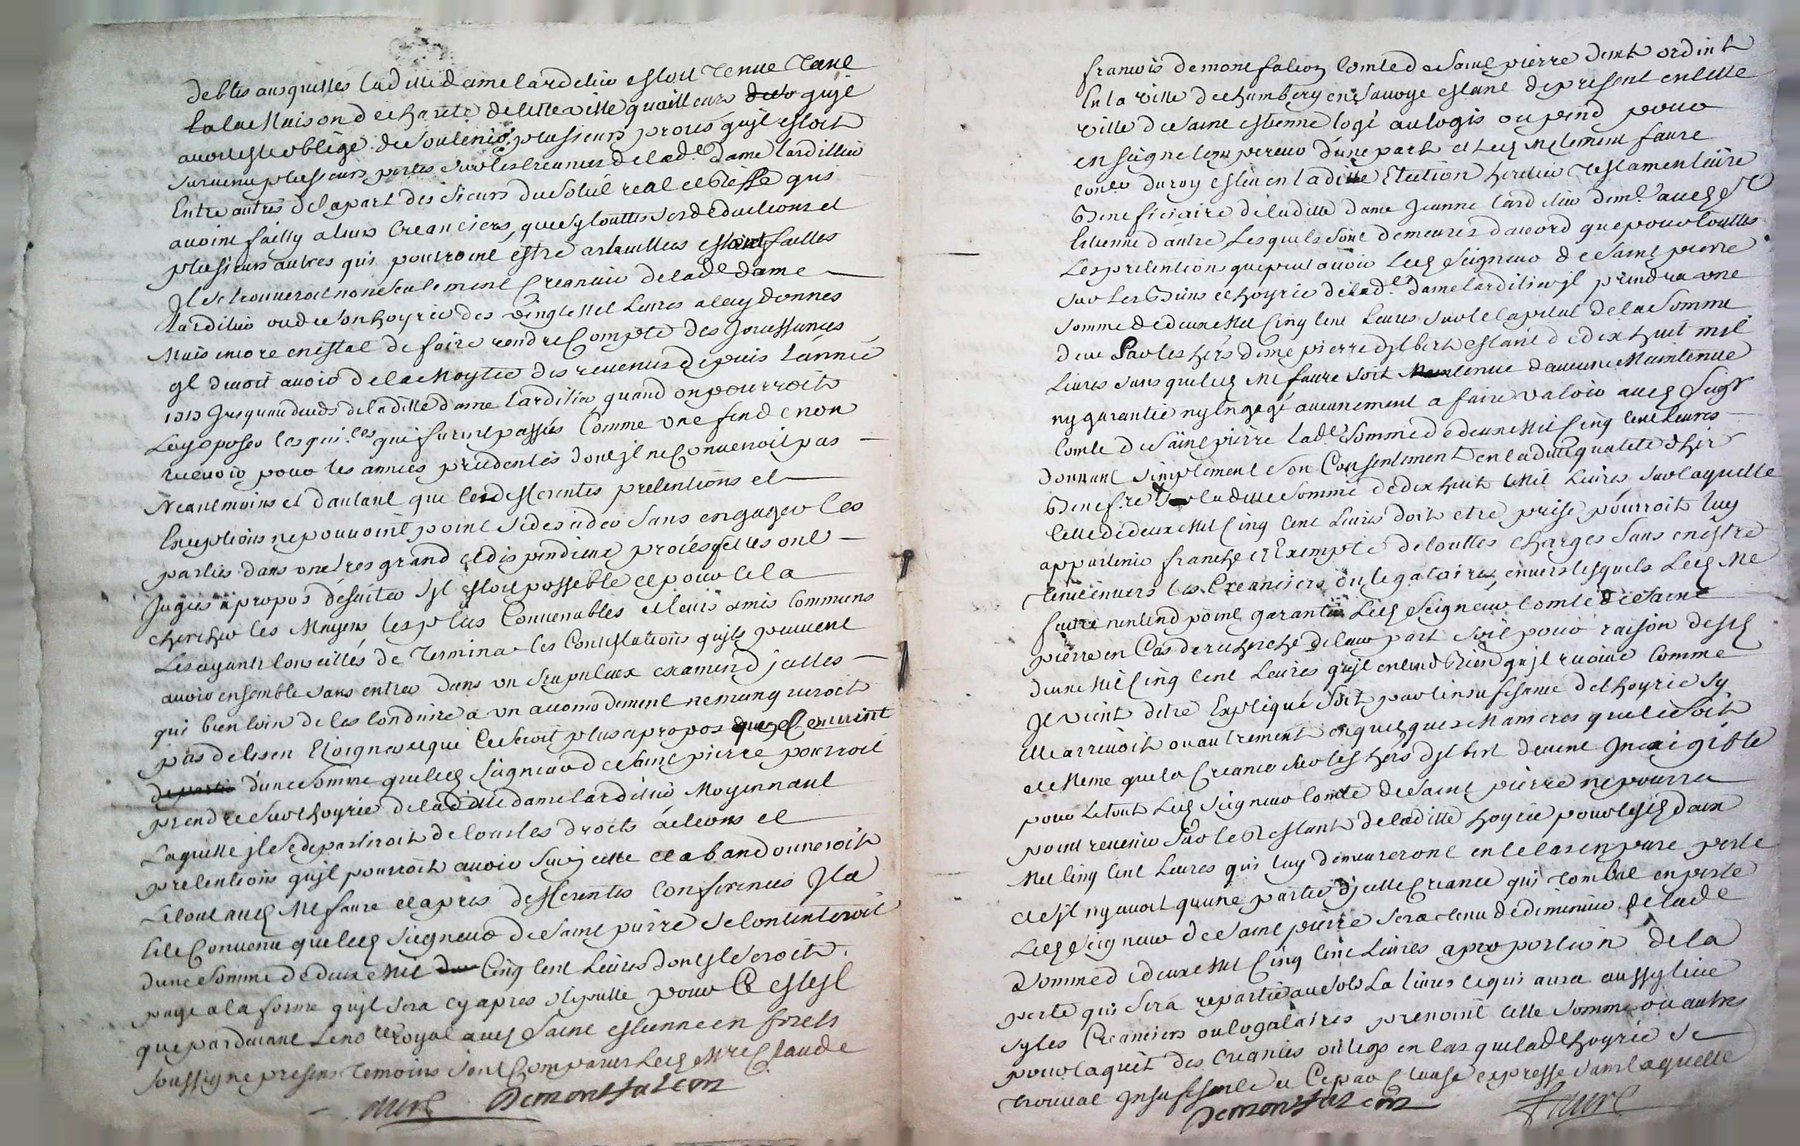 debtes ausquelles laditte dame lardilier estoit tenue tant
a la Maison de charité de cette ville qu'ailleurs quil
avoit esté obligé de soutenir plusieurs procès quil estoit
survenu plusieurs pertes sur les creances de lad.e dame lardillier
Entre autres de la part des sieurs du soleil real et besse qui
avoint failly a leurs creanciers, que sy touttes ses deductions et
plusieurs autres qui pourroint estre estoint faittes
Il se trouveroit non seulement Creancier de lad.e dame
lardilier ou de son hoyrie des vingt mil Livres a luy donnés
Mais encore en estat de faire rendre Compte des Jouissances
ql devoit avoir de la Moytié des revenus depuis l'année
1713 Jusqu'au deces de laditte dame lardilier quand on pourroit
Luy oposer les qui furent passées Comme une fin de non
recevoir pour les années precedentes dont il ne Convenoit pas
Neantmoins et d'autant que les differentes pretentions et
Exceptions ne pouvoint point se decider sans engager les
parties dans un tres grand et dispendieux procès qu'elles ont
Jugées a propos d'eviter s'il estoit possible et pour cela
chercher les Moyens les plus Convenables et leurs amis Communs
Les ayants Conseillés de Terminer les Contestations qu'ils peuvent
avoir ensemble sans entrer dans un scrupuleux examen d'icelles
qui bien loin de les Conduire a un accomodement ne manqueroit
pas de les en Eloigner et qui Ce seroit plus a propos
d'une somme que led. Seigneur de Saint pierre pourroit
prendre sur l'hoyrie de laditte dame lardilier Moyennant
Laquelle il se departiroit de tous les droits actions et
pretentions quil pourroit avoir sur icelle et abandonneroit
Le tout aud. Me faure et apres differentes Conferences Il a
Esté Convenu que led. Seigneur de Saint pierre se Contenteroit
d'une somme de deux Mil Cinq Cent Livres dont il seroit
payé a la forme quil sera cy apres stipullé pour Ce est il
que pardevant Le no.re Royal aud. Saint estienne en forets
soussigné presens temoins sont Comparus Led. Mre Claude
faure Demontfalcon
francois de montfalcon Comte de Saint pierre dem.t ordin.t
En la ville de chambery en savoye estant de present en cette
ville de Saint estienne logé au logis ou pend pour
enseigne lempereur d'une part et Led. Me Clement faure
con.er du roy esleu en laditte Election heritier Testamentaire
Beneficiaire de laditte dame Jeanne lardilier dem.t aud. St
Estienne d'autre Lesquels sont demeurés d'acord que pour touttes
Les pretentions que peut avoir Led. Seigneur de Saint pierre
sur Les Biens et hoyrie de lad.e dame lardilier il prendra une
somme de deux Mil Cinq Cent Livres sur le Capital de la somme
deue par les hers de me pierre Gilbert estant de dix huit mil
Livres sans que led. Me faure soit tenue d'aucune Maintenue
ny garantie ny Engagé aucunement a faire valoir aud. Seigr
Comte de Saint pierre lad.e somme de deux Mil Cinq Cent Livres
donnant simplement son Consentement en laditte qualité d'her
Benef.re laditte somme de dix huit Mil Livres sur laquelle
Cette de deux Mil Cinq Cent Livres doit etre prise pourroit luy
appartenir franche et Exempte de touttes charges sans en estre
tenu envers les Creanciers ou legataires envers lesquels Led. Me
faure n'entend point garantir Led. Seigneur Comte de Saint
pierre en Cas de recherche de leur part soit pour raison desd.
deux Mil Cinq Cent Livres quil entend Bien quil recoive Comme
Il vient d'etre Expliqué soit par l'insufisance de l'hoyrie sy
Elle arrivoit ou autrement en quelques Manieres que ce soit
et Meme que la Creance sur les hers Gilbert devint Inexigible
pour Le tout Led. Seigneur Comte de Saint pierre ne pourra
point revenir sur le Restant de laditte hoyrie pour lesd. deux
Mil Cinq Cent Livres qui luy demeureront en ce Cas en pure perte
et s'il ny avoit qu'une partie d'icelle Creance qui tombat en perte
Led. Seigneur de Saint pierre sera tenu de diminuer de lad.e
somme de deux Mil Cinq Cent Livres a proportion de la
perte qui sera repartie au sols La livre Ce qui aura aussy lieu
sy les Creanciers ou legataires prenoint cette somme ou autres
pour l'aquit des creances ou legs en Cas que lad.e hoyrie se
trouvat Insufisante Ce par Clause expresse sans laquelle
Demontfalcon faure